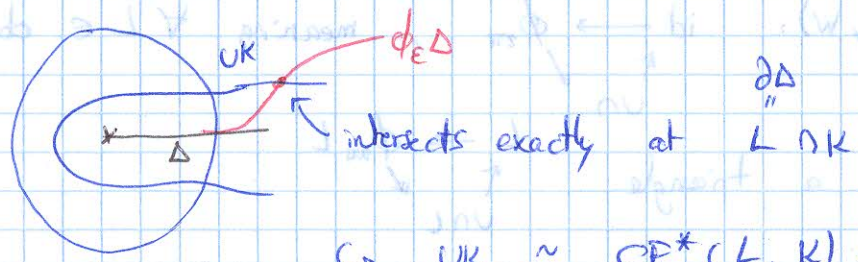 UK
ϕ_ε Δ
Δ
∂Δ
"
intersects exactly at L ∩ K
UK ~ CF*(L, K)